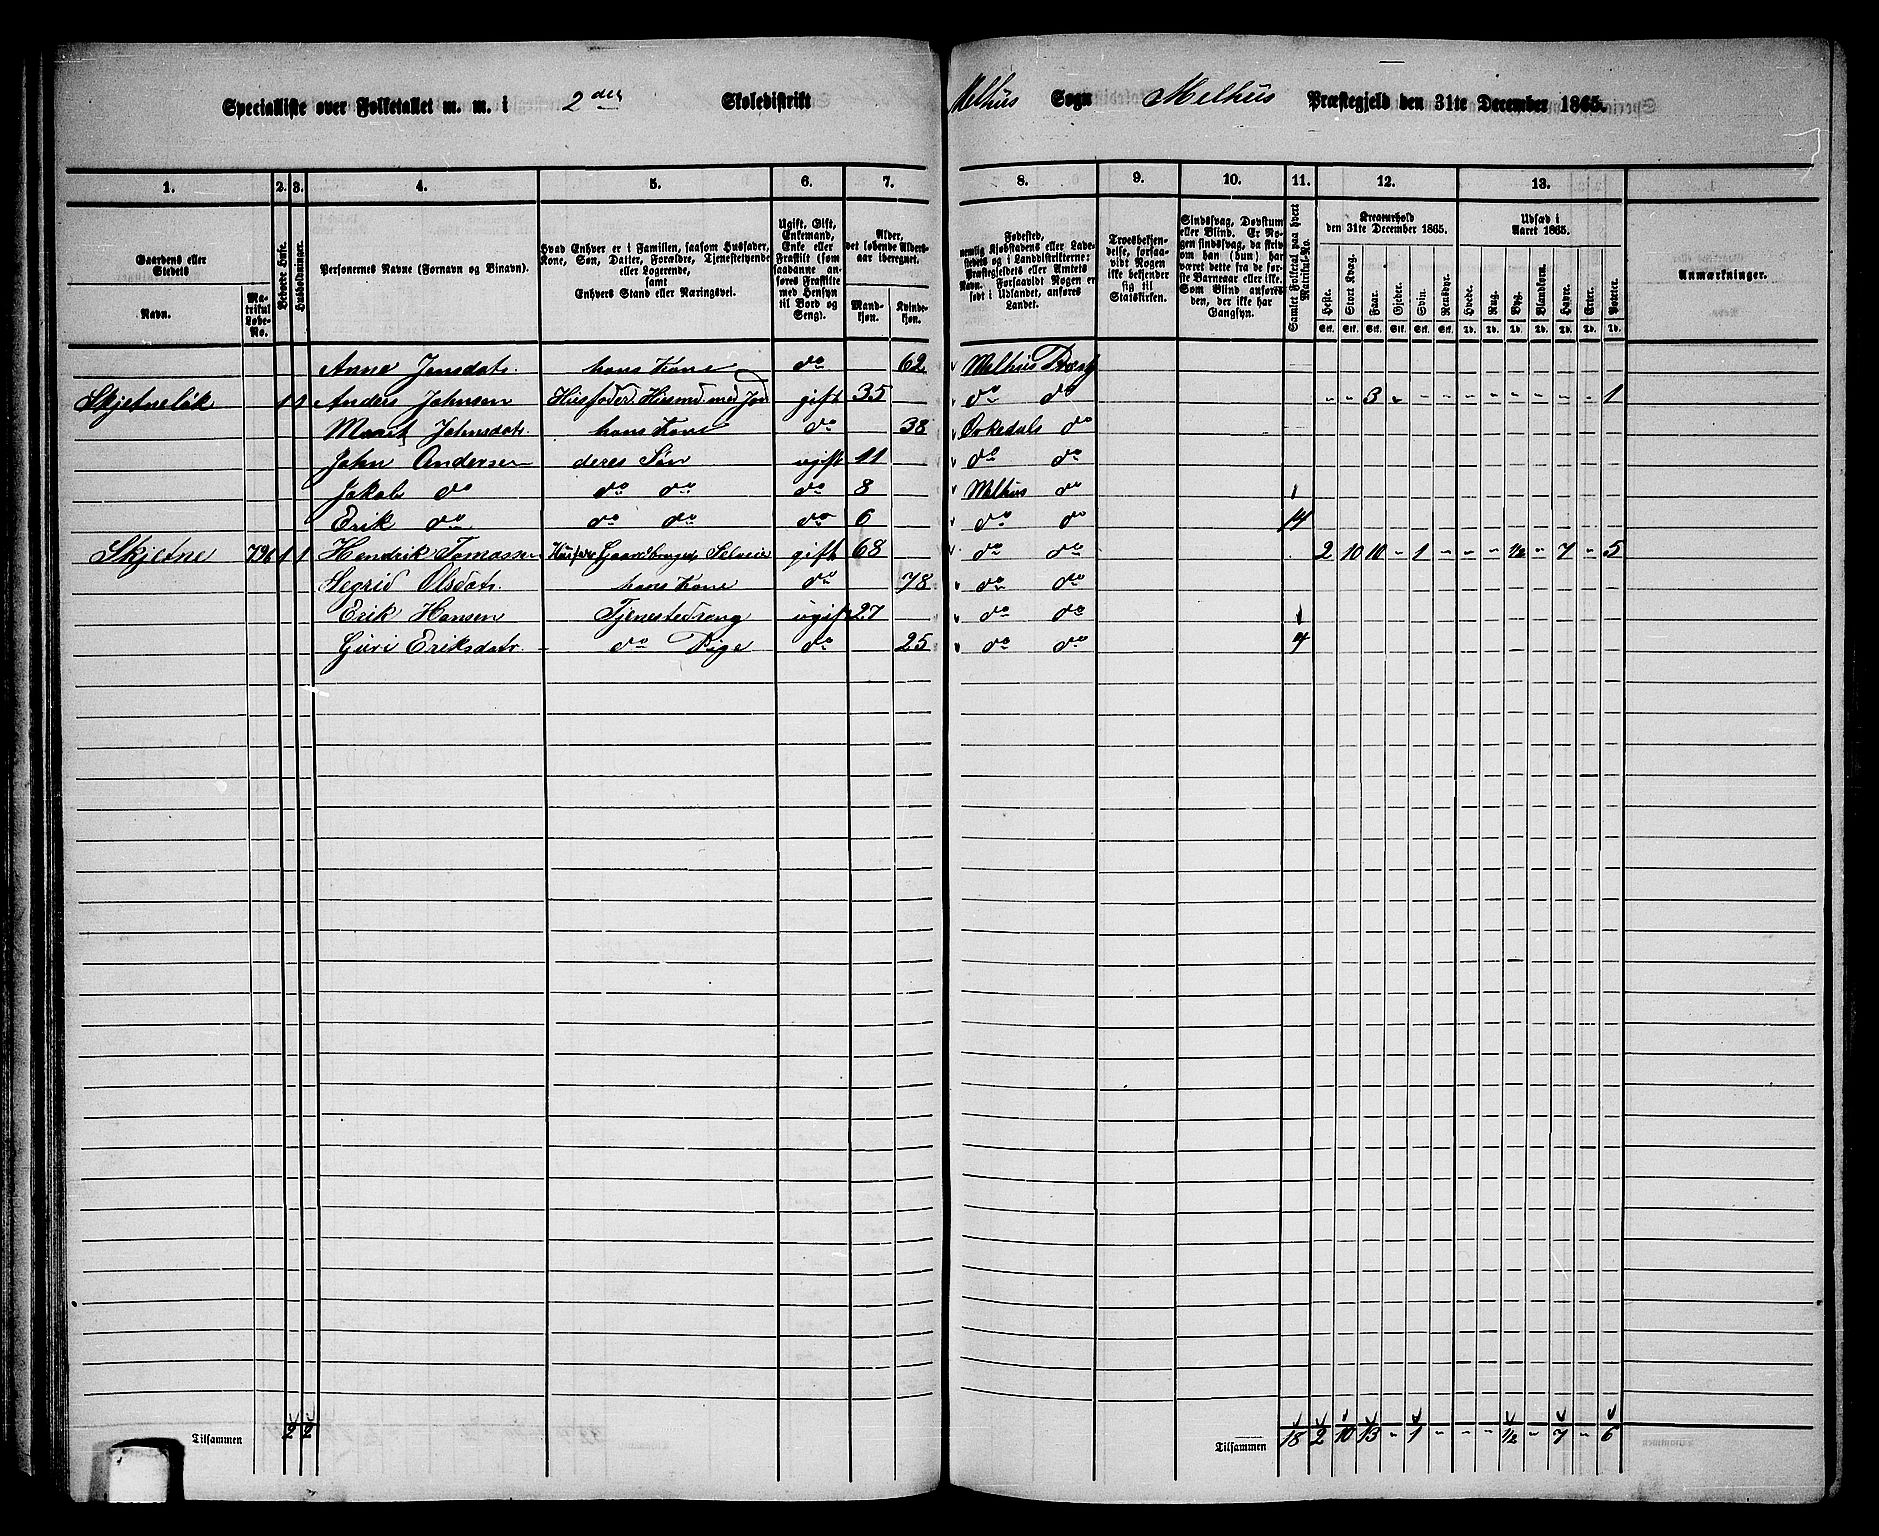 Specialliste over Folketallet m. m. i 2den Skoledistrikt Melhus Sogn Melhus Præstegjeld den 31te December 1865.
1. 2. 3. 4. 5. 6. 7. 8. 9. 10. 11. 12. 13.
Gaardens eller Stedets
Navn.
Matrikul Løbe-No.
Beboede Huse.
Husholdninger.
Personernes Navne (Fornavn og Binavn).
Hvad Enhver er i Familien, saasom Husfader, Kone, Søn, Datter, Forældre, Tjenestetyende eller Logerende, samt Enhvers Stand eller Næringsvei.
Ugift, Gift, Enkemand, Enke eller Fraskilt (som saadanne anføres Fraskilte med Hensyn til Bord og Seng).
Alder, det løbende Alders-aar iberegnet.
Mandkjøn. Kvindekjøn.
Fødested, nemlig Kjøbstadens eller Ladestedets og i Landdistrikterne: Præstegjeldets eller Amtets Navn. Forsaavidt Nogen er født i Udlandet, anføres Landet.
Troesbekjendelse, forsaavidt Nogen ikke bekjender sig til Statskirken.
Sindssvag, Døvstum eller Blind. Er Nogen sindssvag, da skriv om han (hun) har været dette fra de første Barneaar eller ikke. Som Blind anføres den, der ikke har Gangsyn.
Samlet Folketal paa hvert Matrikul-No.
Kreaturhold den 31te December 1865.
Heste. Stort Kvæg. Faar. Gjeder. Svin. Rensdyr.
Udsæd i Aaret 1865.
Hvede. Rug. Byg. Blandkorn. Havre. Erter. Poteter.
Anmærkninger.
Anne Jensdatr. hans Kone do 62 Melhus Præstg
Skjetnelik 1 1 Anders Johnsen Husfader. Husmd. med Jord gift 35 do do - - 3 - - - - - - - - - 1
Marit Johnsdatr. hans Kone do 38 Orkedals do
John Andersen deres Søn ugift 11 do do
Jakob do do do do 8 Melhus do
Erik do do do do 6 do do 14
Skjetne 79b 1 1 Hendrik Tomassen Husfader Gaardbruger Selveier gift 68 do do 2 10 10 - 1 - - - 1/2 - 7 - 5
Segrid Olsdatr. hans Kone do 78 do do
Erik Hansen Tjenestedreng ugift 27 do do
Guri Eriksdatr. do Pige do 25 do do 4
Tilsammen 2 2 Tilsammen 18 2 10 13 - 1 - - - 1/2 - 7 - 6